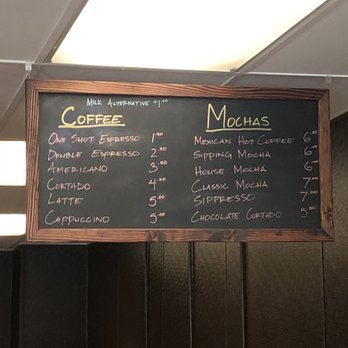 Milk Alternative +1.00
Coffee
One Shot Espresso 1.50
Double Espresso 2.50
Americano 3.50
Cortado 4.00
Latte 5.00
Cappuccino 5.00
Mochas
Mexican Hot Coffee 6.00
Sipping Mocha 6.00
House Mocha 6.00
Classic Mocha 7.00
Sippresso 7.00
Chocolate Cortado 5.50